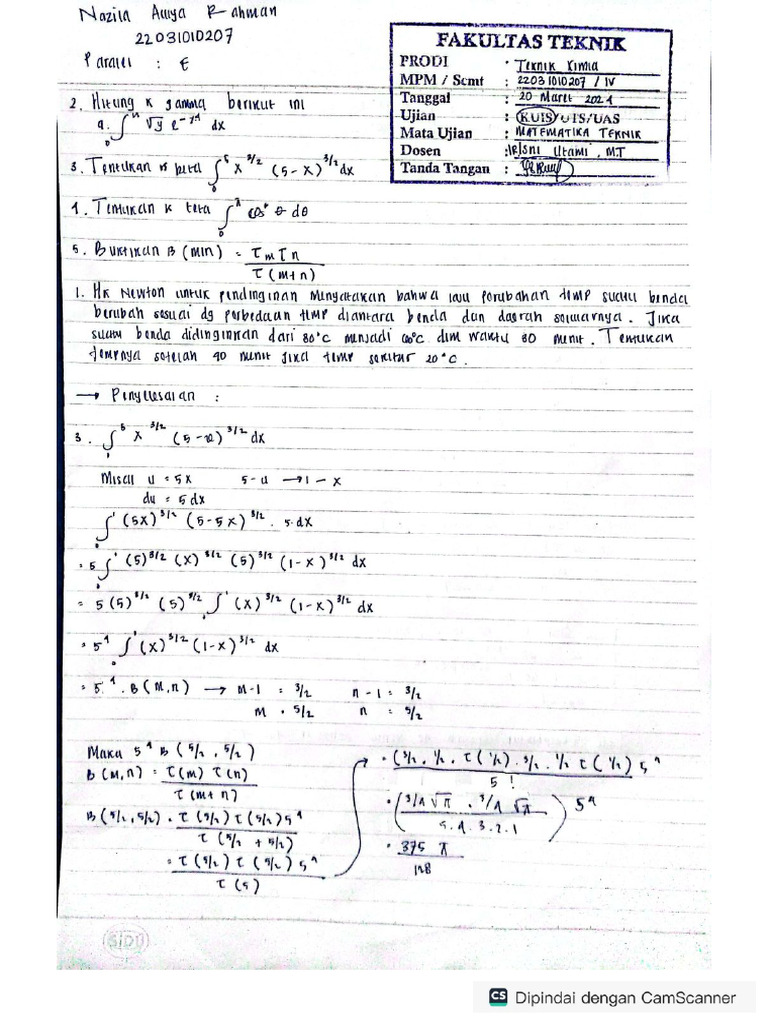 Nazila Auya Rahman
22031010207
Paralel : E
FAKULTAS TEKNIK
PRODI : Teknik Kimia
MPM / Semt : 22031010207 / IV
Tanggal : 20 Maret 2024
Ujian : KUIS/UTS/UAS
Mata Ujian : MATEMATIKA TEKNIK
Dosen : Utami, M.T
Tanda Tangan :
2. Hitung k gamma berikut ini
a. ∫ √y e dx
3. Tentukan k beta ∫ x^3/2 (5-x)^3/2 dx
4. Temukan k teta ∫ cos⁴ θ dθ
5. Buktikan B (min) = τm τn / τ(m+n)
1. Hk Newton untuk pindinginan minyatakan bahwa laju perubahan temp suatu benda
berubah sesuai dg perbedaan temp diantara benda dan daerah sekitarnya. Jika
suatu benda didinginkan dari 80°C menjadi 60°C dlm waktu 30 menit. Temukan
tempnya setelah 40 menit jika temp sekitar 20°C.
→ Penyelesaian :
3. ∫ x^3/2 (5-x)^3/2 dx
Misal u = 5x 5-u → 1-x
du = 5 dx
∫ (5x)^3/2 (5-5x)^3/2 . 5 dx
= 5 ∫ (5)^3/2 (x)^3/2 (5)^3/2 (1-x)^3/2 dx
= 5 (5)^3/2 (5)^3/2 ∫ (x)^3/2 (1-x)^3/2 dx
= 5^4 ∫ (x)^3/2 (1-x)^3/2 dx
= 5^4 . B(m,n) → m-1 = 3/2 n-1 = 3/2
m = 5/2 n = 5/2
Maka 5^4 B (5/2, 5/2)
B (m,n) = τ(m) τ(n) / τ(m+n)
B (5/2, 5/2) = τ(5/2) τ(5/2) 5^4 / τ(5/2 + 5/2)
= τ(5/2) τ(5/2) 5^4 / τ(5)
= (3/2 . 1/2 . τ(1/2) . 3/2 . 1/2 τ(1/2)) 5^4 / 5!
= (3/4 √π . 3/4 √π / 5.4.3.2.1) 5^4
= 375 π / 128
SIDU
CS Dipindai dengan CamScanner